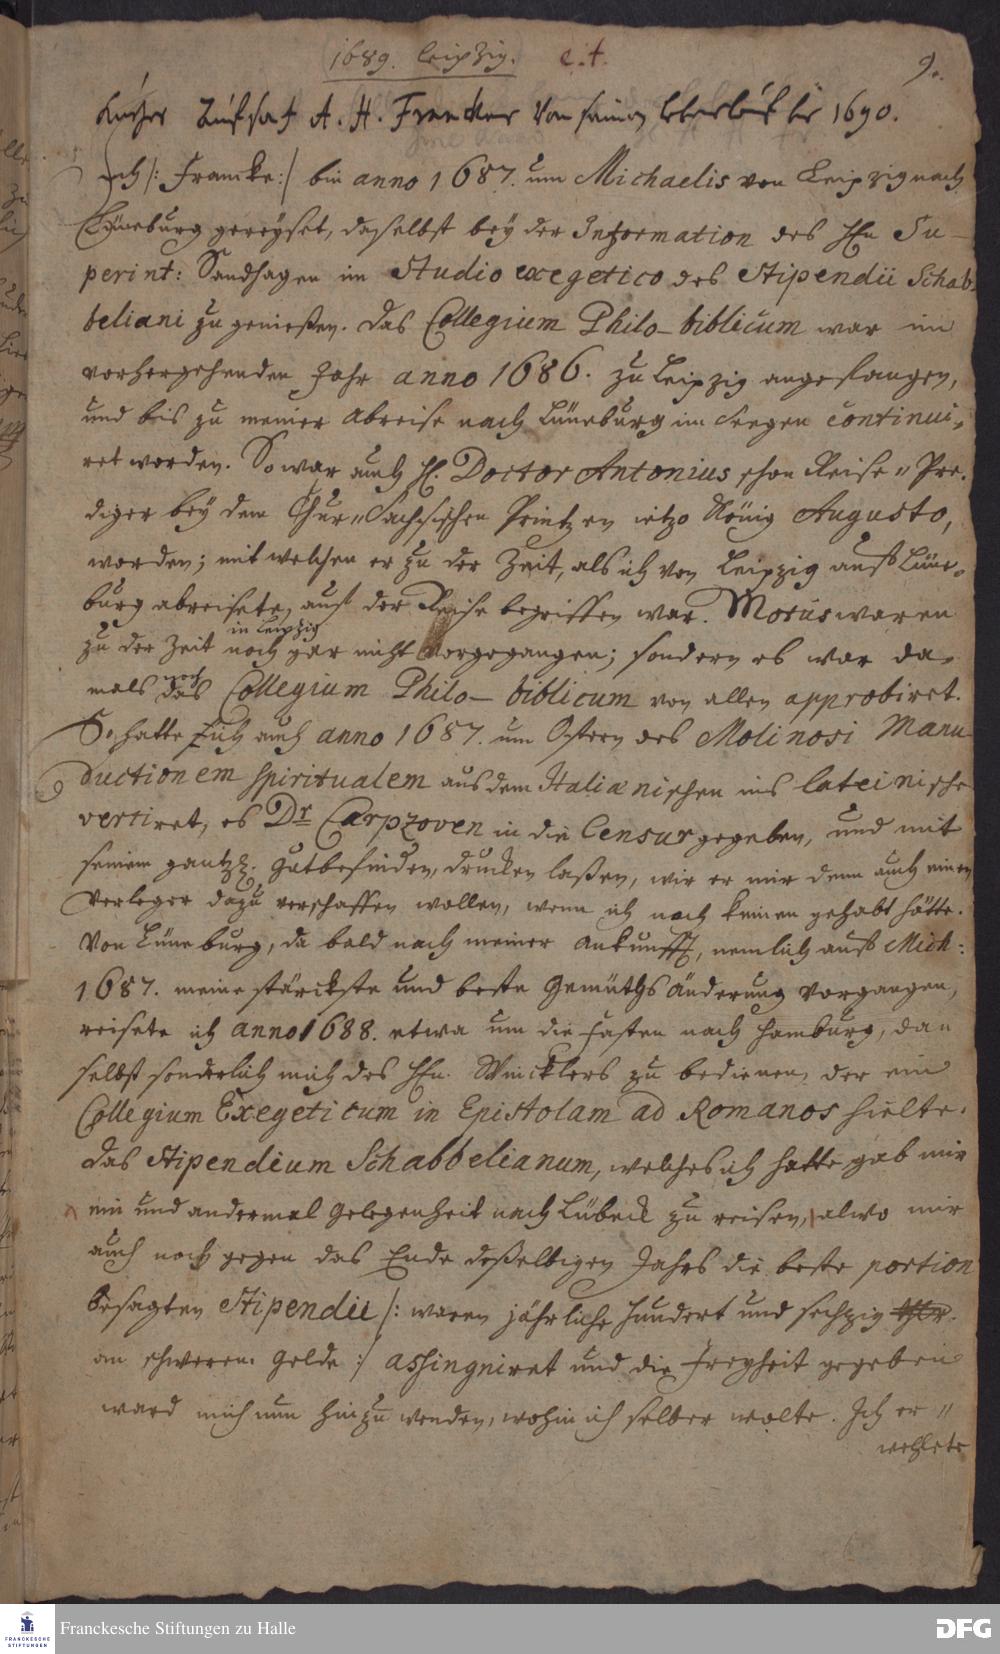 (1689. Leipzig.) c. t. 9.
Kurtzer Aufsatz A. H. Francken Von seinem lebenslauf bis 1690.
Ich /: Francke :/ bin anno 1687. um Michaelis von Leipzig nach
Lüneburg gereyset, daselbst bey der Information des HEn Su-
perint: Sandhagen im Studio exegetico des Stipendii Schab-
beliani zu genießen. Das Collegium Philo-biblicum war im
vorhergehenden Jahr anno 1686. zu Leipzig angefangen,
und bis zu meiner Abreise nach Lüneburg im Seegen continui-
ret worden. So war auch H. Doctor Antonius schon Reise-Pre-
diger bey dem Chur-Sächsischen Printzen ietzo König Augusto,
worden; mit welchen er zu der Zeit, als ich von Leipzig auß Lüne-
burg abreisete, auf der Reise begriffen war. Motus waren
zu der Zeit in Leipzig noch gar nicht vorgegangen; sondern es war da-
mals noch das Collegium Philo-biblicum von allen approbiret.
So hatte ich auch anno 1687. um Ostern des Molinosi Manu
ductionem spiritualem aus dem Italiænischen ins lateinische
vertiret, es Dr Carpzoven in die Censur gegeben, und mit
seinem gantzen gutbefinden, drucken laßen, wie er mir denn auch einen
Verleger dazu verschaffen wollen, wenn ich noch keinen gehabt hätte.
Von Lüneburg, da bald nach meiner Ankunfft, nemlich auß Mich:
1687. meine stärckste und beste Gemüths Änderung vorgangen,
reisete ich anno 1688. etwa um die Fasten nach Hamburg, da
selbst sonderlich mich des HEn. Wincklers zu bedienen, der ein
Collegium Exegeticum in Epistolam ad Romanos hielte.
Das Stipendium Schabbelianum, welches ich hatte gab mir
ein und andermal Gelegenheit nach Lübeck zu reisen, alwo mir
auch noch gegen das Ende deßelbigen Jahrs die beste portion
besagten Stipendii /: waren jährliche hundert und sechzig thlr.
an schweren Gelde :/ assingniret und die Freyheit gegeben
ward mich nun hinzu wenden, wohin ich selber wolte. Ich er-
wehlete
Franckesche Stiftungen zu Halle
FRANCKESCHE
STIFTUNGEN
DFG